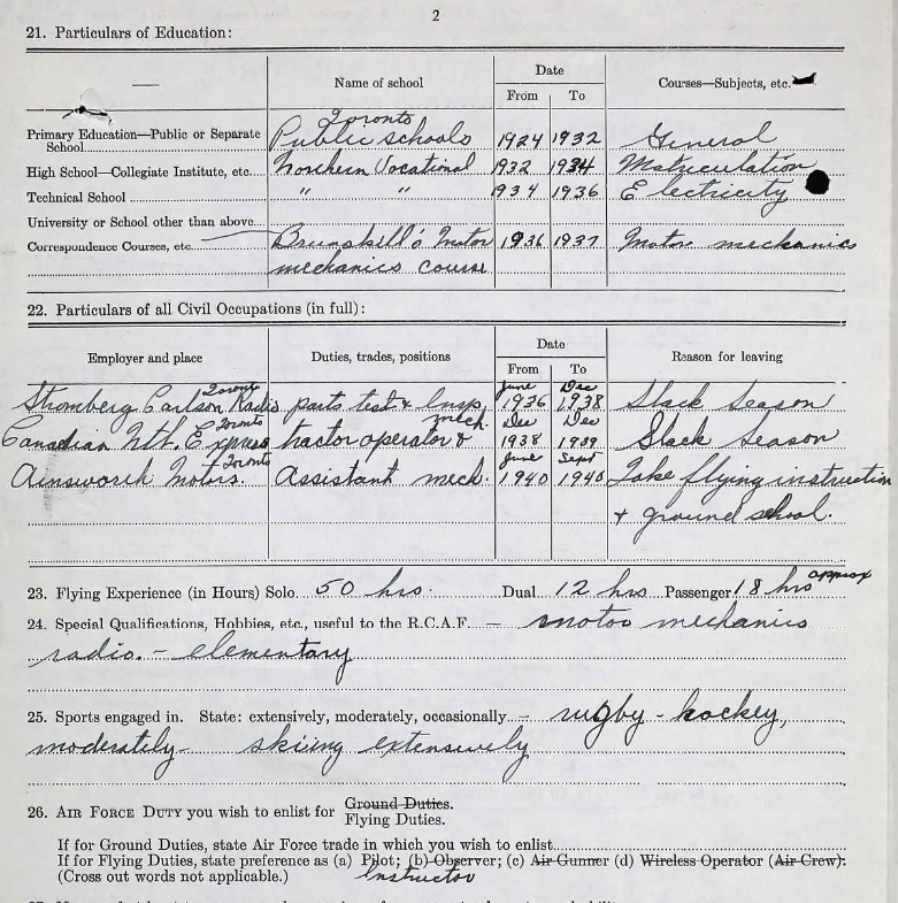 2
21. Particulars of Education:
—
Name of school
Date
From To
Courses—Subjects, etc.
Toronto
Primary Education—Public or Separate
School Public schools 1924 1932 General
High School—Collegiate Institute, etc. Northern Vocational 1932 1934 Matriculation
Technical School " " 1934 1936 Electricity
University or School other than above
Correspondence Courses, etc. Brunskill's Motor 1936 1937 Motor mechanics
mechanics course
22. Particulars of all Civil Occupations (in full):
Employer and place
Duties, trades, positions
Date
From To
Reason for leaving
Toronto June Dec
Stromberg Carlson Radio parts test & Insp. 1936 1938 Slack Season
Toronto mech. Dec Dec
Canadian Ntl. Express tractor operator & 1938 1939 Slack Season
Toronto June Sept
Ainsworth Motors. Assistant mech. 1940 1940 Take flying instruction
+ ground school.
23. Flying Experience (in Hours) Solo 50 hrs. Dual 12 hrs Passenger 18 hrs approx
24. Special Qualifications, Hobbies, etc., useful to the R.C.A.F. — motor mechanics
radio. - elementary
25. Sports engaged in. State: extensively, moderately, occasionally - rugby - hockey,
moderately - skiing extensively
26. AIR FORCE DUTY you wish to enlist for Ground Duties.
Flying Duties.
If for Ground Duties, state Air Force trade in which you wish to enlist
If for Flying Duties, state preference as (a) Pilot; (b) Observer; (c) Air Gunner (d) Wireless Operator (Air Crew).
(Cross out words not applicable.) Instructor